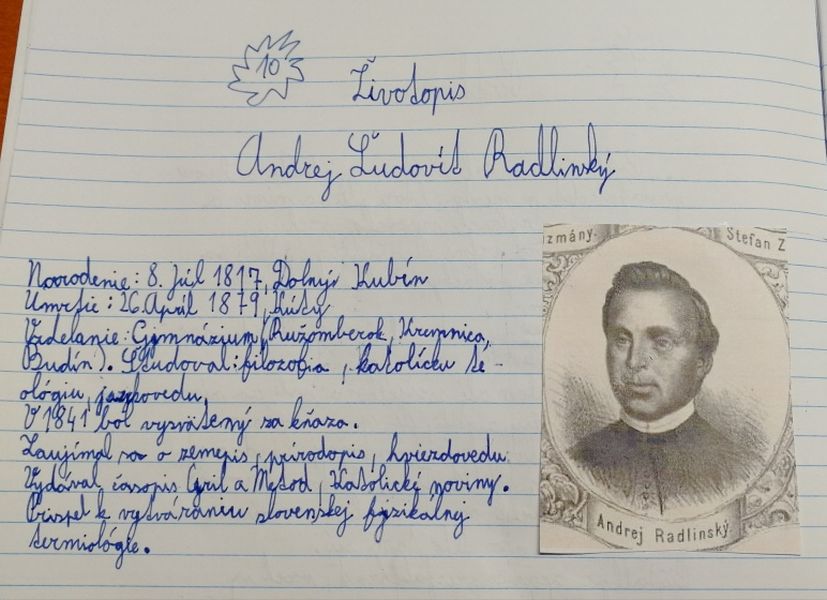 10
Životopis
Andrej Ľudovít Radlinský
Narodenie: 8. júl 1817, Dolný Kubín
Umrtie: 26. April 1879, Kúty
Vzdelanie: Gymnázium (Ružomberok, Kremnica,
Budín). Študoval: filozofia, katolícku te-
ológiu, jazykovedu.
V 1841 bol vysvätený za kňaza.
Zaujímal sa o zemepis, prírodopis, hviezdovedu
Vydával časopis Cyril a Metod, Katolické noviny.
Prispel k vytváraniu slovenskej fyzikálnej
termiológie.
izmány.
Stefan Z
Andrej Radlinský